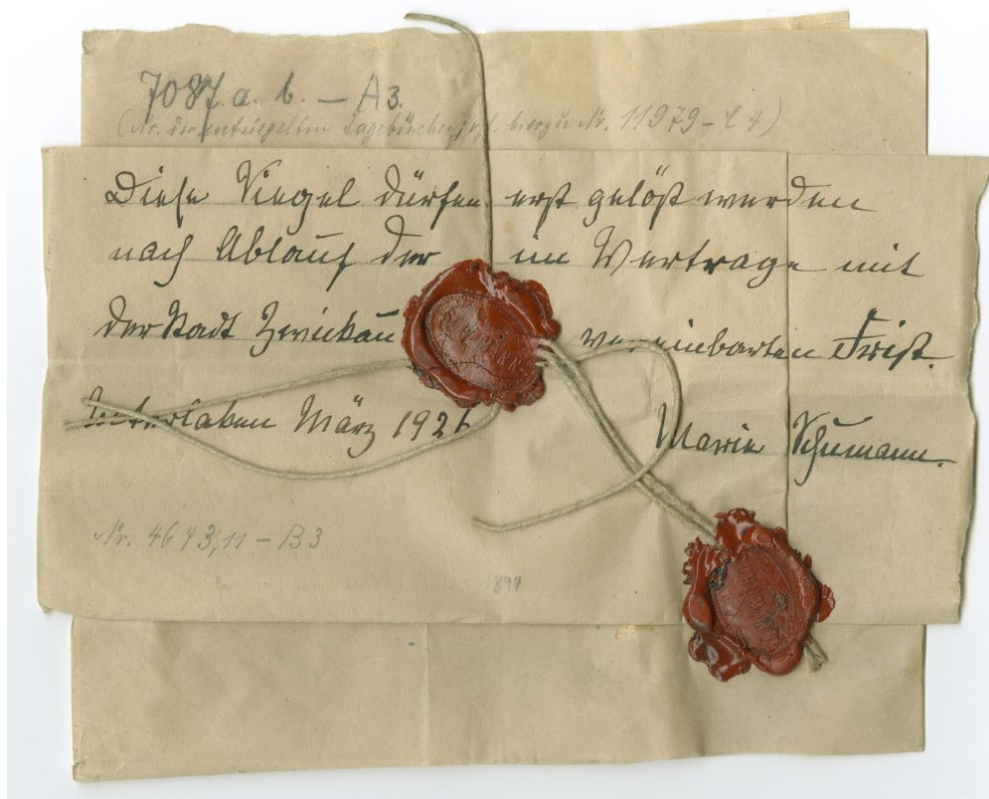 7087,a. b. — A3.
(Nr. der entsiegelten Tagebücher; vgl. hierzu Nr. 11979-C4)
Diese Siegel dürfen erst gelöst werden
nach Ablauf der im Vertrage mit
der Stadt Zwickau vereinbarten Frist.
Interlaken März 1926 Marie Schumann.
Nr. 4643,11 - B3